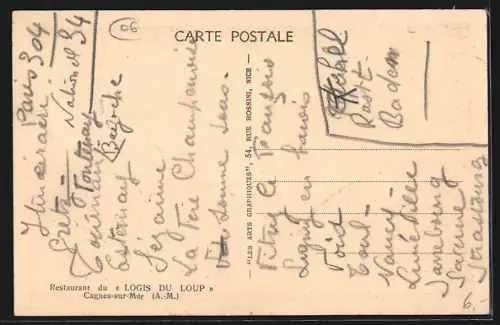 CARTE POSTALE
06
Itineraire Paris 304
Gretz - National 34
Fontenay
Tournan
Esternay
Sézanne
La Fère Champenoise
Somme Sous -
Vitry le François
Ligny en Barrois
Void
Toul -
Nancy -
Lunéville
Sarrebourg
Saverne
Strasbourg
Kehl
Rastt -
Baden
"LES ARTS GRAPHIQUES", 54, RUE ROSSINI, NICE -
Restaurant du « LOGIS DU LOUP »
Cagnes-sur-Mer (A.-M.)
6.-